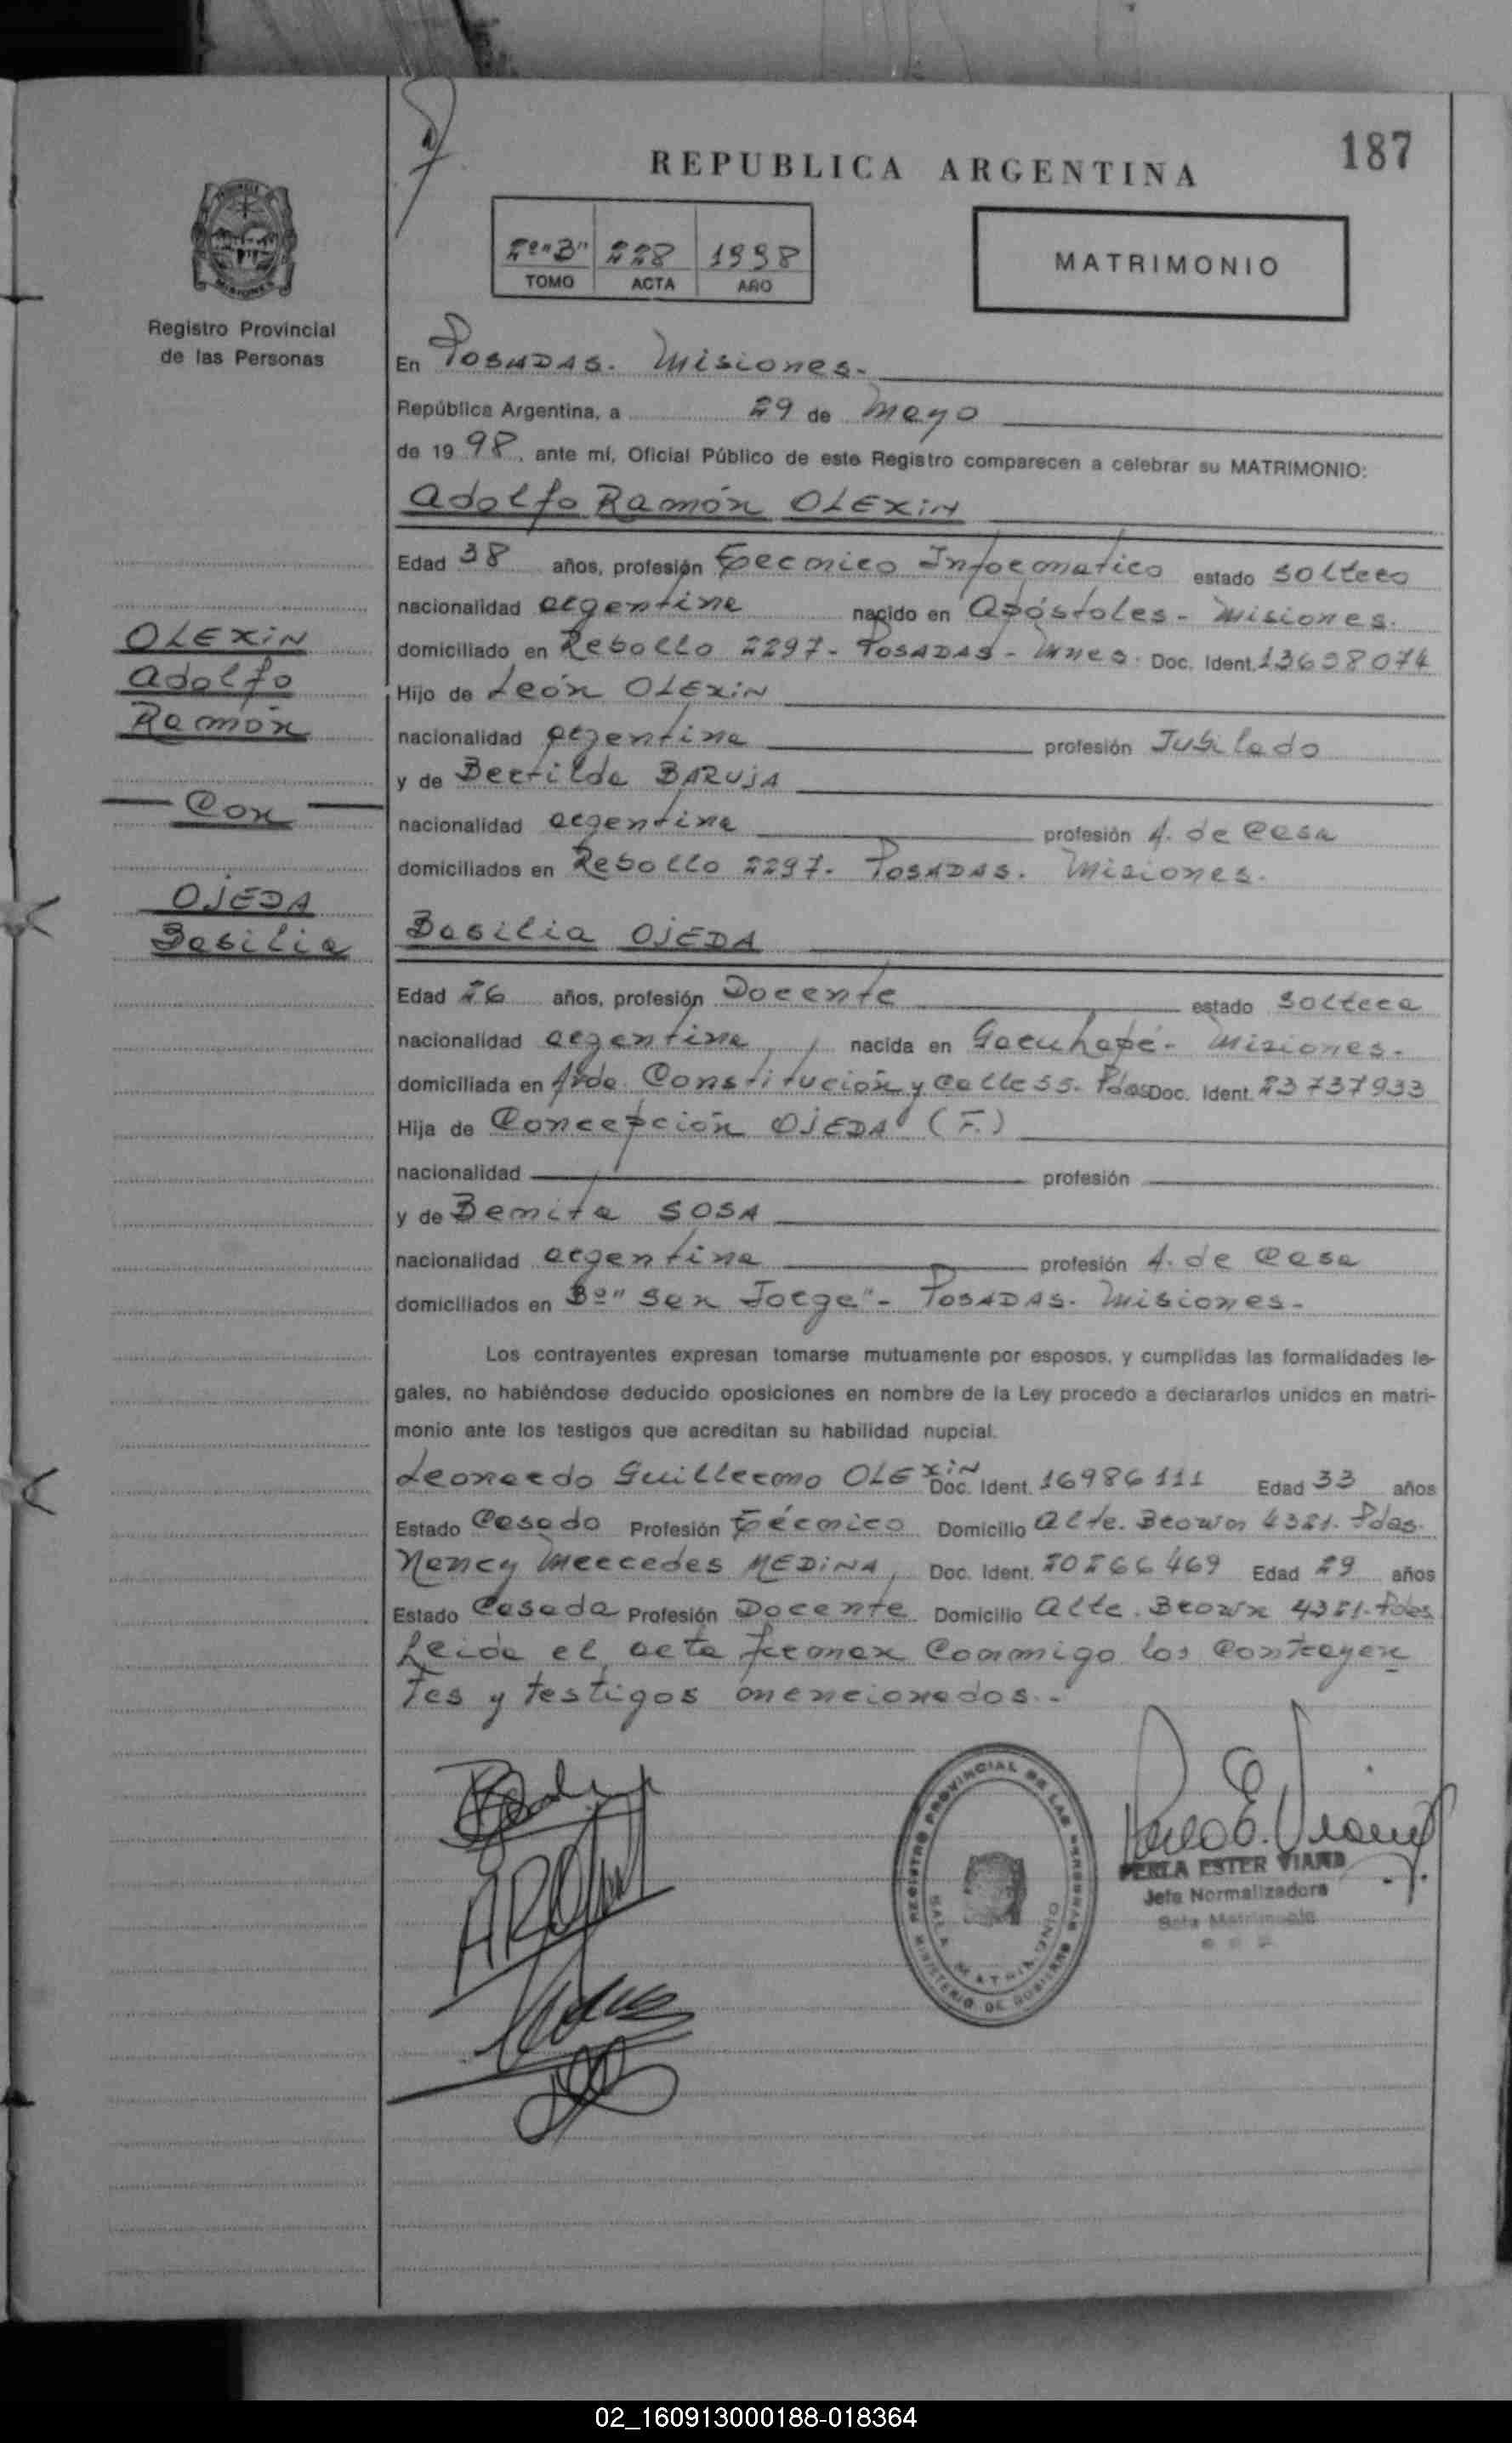 187
REPUBLICA ARGENTINA
2º "B" 228 1998
TOMO ACTA AÑO
MATRIMONIO
Registro Provincial
de las Personas
En POSADAS. Misiones.-
República Argentina, a 29 de Mayo
de 19 98, ante mí, Oficial Público de este Registro comparecen a celebrar su MATRIMONIO:
Adolfo Ramón OLEXiN
Edad 38 años, profesión Tecnico Informatico estado Soltero
nacionalidad argentina nacido en Apóstoles - Misiones.
domiciliado en Rebollo 2297 - POSADAS - Mnes. Doc. Ident. 13698074
Hijo de León OLEXiN
nacionalidad argentina profesión Jubilado
y de Bertilda BARUJA
nacionalidad argentina profesión A. de Casa
domiciliados en Rebollo 2297 - POSADAS. Misiones.
OLEXiN
Adolfo
Ramón
Con
OJEDA
Basilia
Basilia OJEDA
Edad 26 años, profesión Docente estado Soltera
nacionalidad argentina nacida en Garuhapé - Misiones.
domiciliada en Avda. Constitución y Calle 55. Pdas Doc. Ident. 23737933
Hija de Concepción OJEDA (F.)
nacionalidad profesión
y de Benita SOSA
nacionalidad argentina profesión A. de Casa
domiciliados en Bº "San Jorge" - POSADAS. Misiones.-
Los contrayentes expresan tomarse mutuamente por esposos, y cumplidas las formalidades le-
gales, no habiéndose deducido oposiciones en nombre de la Ley procedo a declararlos unidos en matri-
monio ante los testigos que acreditan su habilidad nupcial.
Leonardo Guillermo OLEXiN Doc. Ident. 16986111 Edad 33 años
Estado Casado Profesión Técnico Domicilio Alte. Brown 4321. Pdas.
Nancy Mercedes MEDINA, Doc. Ident. 20266469 Edad 29 años
Estado Casada Profesión Docente Domicilio Alte. Brown 4321. Pdas
Leida el acta firman Conmigo los Contrayen
tes y testigos mencionados.-
REGISTRO PROVINCIAL DE LAS PERSONAS
MINISTERIO DE GOBIERNO
SALA MATRIMONIO
PERLA ESTER VIANA
Jefa Normalizadora
Sala Matrimonio
02_160913000188-018364